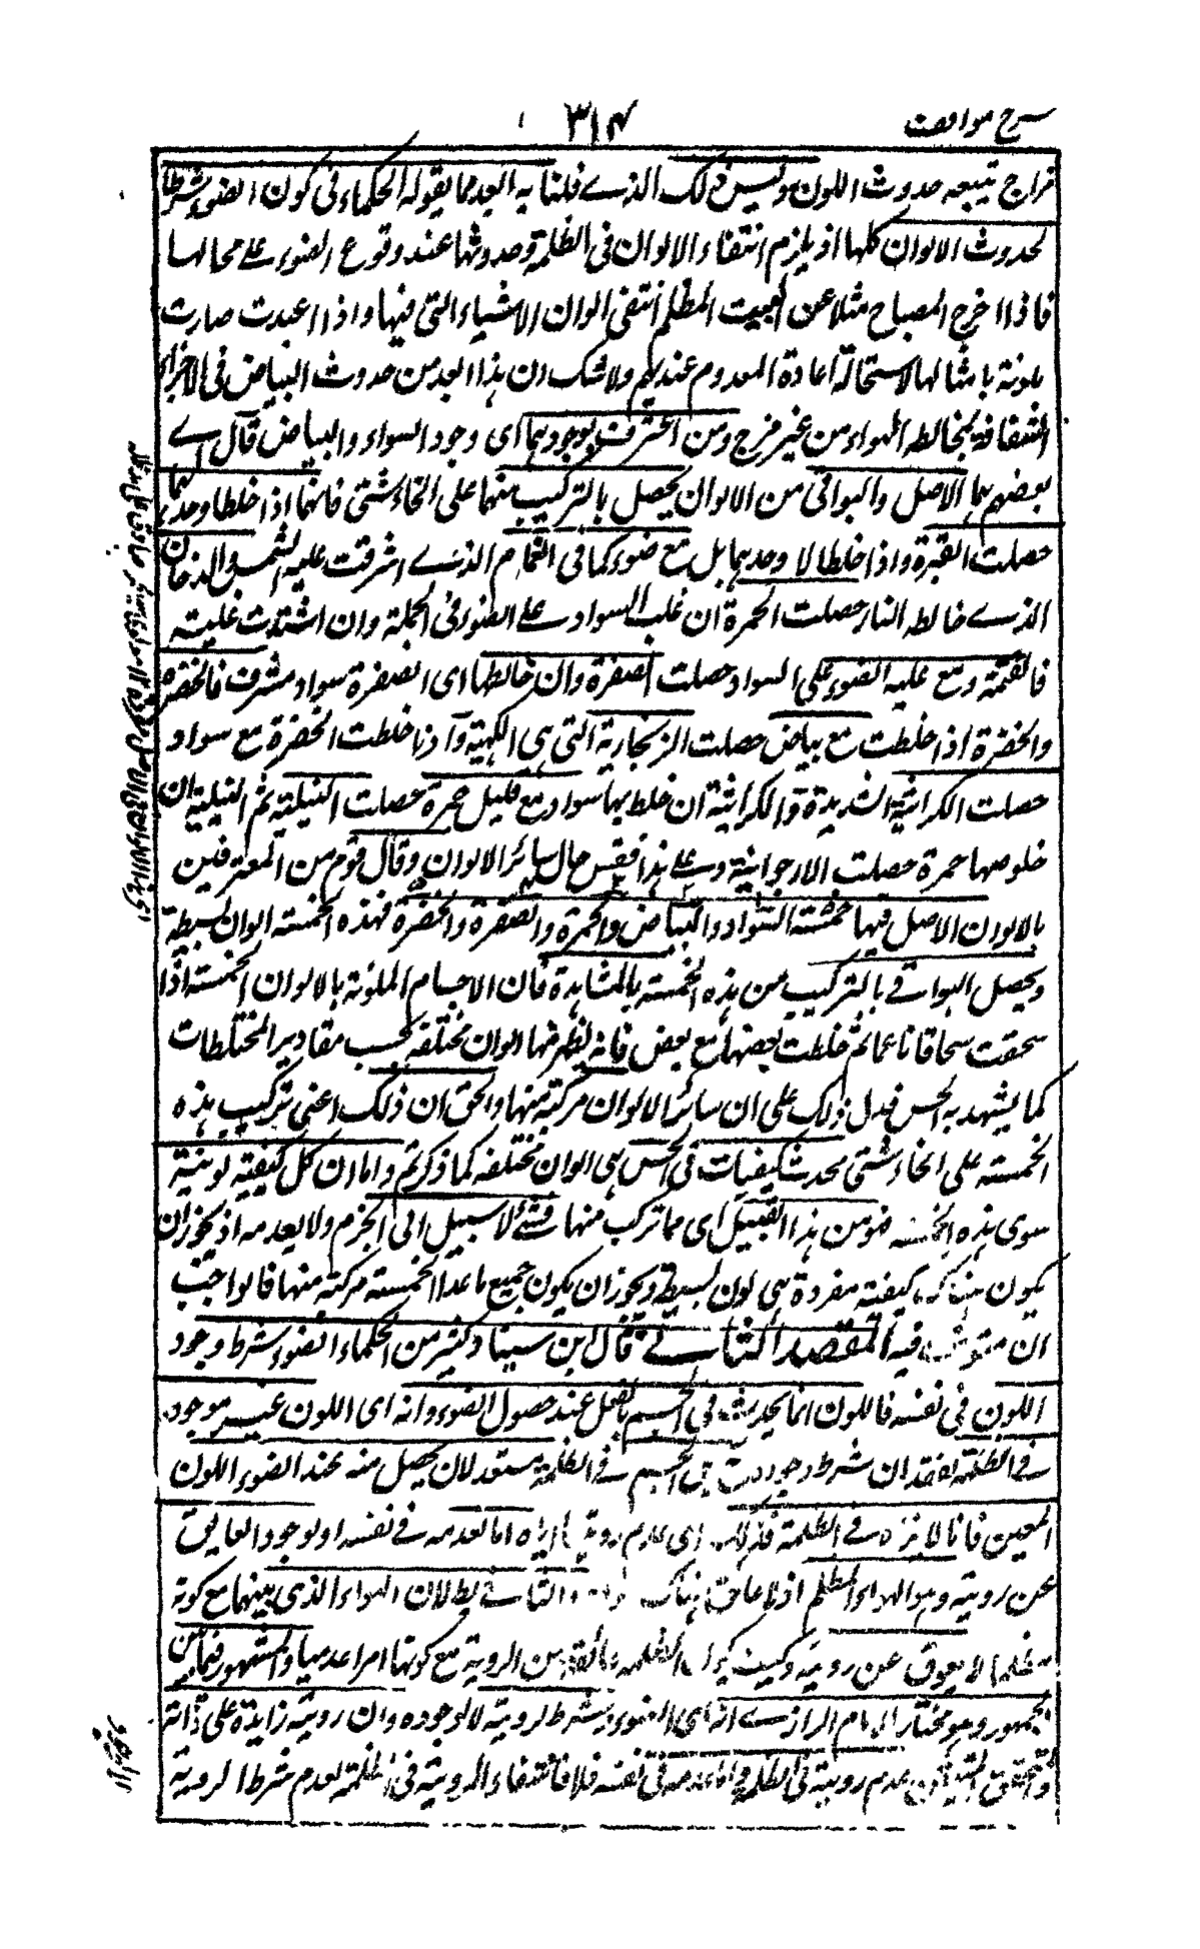 شرح مواقف
۳۱۴
مزاج يتبعه حدوث اللون وليس ذلك الذے قلنا به ابعد مما يقوله الحكماء فی كون الضوء شرطا
لحدوث الالوان كلها اذ يلزم انتفاء الالوان فی الظلمة وحدوثها عند وقوع الضوء علے محالها
فاذا اخرج المصباح مثلا عن البيت المظلم انتفی الوان الاشياء التی فيها واذا اعيدت صارت
ملونة بامثالها لاستحالة اعادة المعدوم عندهم ولا شك ان هذا ابعد من حدوث البياض فی الاجزاء
الشفافة بمخالطة الهواء من غير مزاج ومن اعترف بوجودهما ای وجود السواد والبياض قال اے
بعضهم هما الاصل والبواقی من الالوان يحصل بالتركيب منهما علی انحاء شتی فانهما اذا خلطا وحدهما
حصلت الغبرة واذا خلطا لا وحدهما بل مع ضوء كما فی الغمام الذے اشرقت عليه الشمس والدخان
الذے خالطه النار حصلت الحمرة ان غلب السواد علے الضوء فی الجملة وان اشتدت غلبته
فالقتمة ومع غلبة الضوء علی السواد حصلت الصفرة وان خالطها ای الصفرة سواد مشرق فالخضرة
والخضرة اذا خلطت مع بياض حصلت الزنجارية التی هی الكهبة واذا خلطت الخضرة مع سواد
حصلت الكراثية الشديدة والكراثية ان خلط بها سواد مع قليل حمرة حصلت النيلية ثم النيلية ان
خلوصها حمرة حصلت الارجوانية وعلے هذا فقس حال سائر الالوان وقال قوم من المعترفين
بالالوان الاصل فيها خمسة السواد والبياض والحمرة والصفرة والخضرة فهذه الخمسة الوان بسيطة
ويحصل البواقے بالتركيب من هذه الخمسة بالمشاهدة فان الاجسام الملونة بالالوان الخمسة اذا
سحقت سحقا ناعما ثم خلطت بعضها مع بعض فانه يظهر منها الوان مختلفة بحسب مقادير المختلطات
كما يشهد به الحس فدل ذلك علی ان سائر الالوان مركبة منها والحق ان ذلك اعنی تركيب هذه
الخمسة علی انحاء شتی يحدث كيفيات فی الحس هی الوان مختلفة كما ذكرتم واما ان كل كيفية لونية
سوی هذه الخمسة فهو من هذا القبيل ای مما تركب منها فشئ لا سبيل الی الجزم ولا بعدمه اذ يجوز ان
يكون هناك كيفية مفردة هی لون بسيط ويجوز ان يكون جميع ما عدا الخمسة مركبة منها فالواجب
ان يتوقف فيه المقصد الثانے قال ابن سينا وكثير من الحكماء الضوء شرط وجود
اللون فی نفسه فاللون انما يحدث فی الجسم بالفعل عند حصول الضوء وانه ای اللون غير موجود
فے الظلمة لفقدان شرط وجوده بل الجسم فے الظلمة مستعد لان يحصل منه عند الضوء اللون
المعين فانا لا نراه فے الظلمة فذلك ای عدم رويتنا اياه اما لعدمه فے نفسه او لوجود العائق
عن رويته وهو الهواء المظلم اذ لا عائق هناك والثانے بطلان الهواء الذی بينهما مع كونه
مظلما لا يعوق عن رويته وكيف يكون الظلمة عائقة من الروية مع كونها امرا عدميا والمشهور فيما بين
الجمهور وهو مختار الامام الرازے انه ای الضوء شرط لرويته لا لوجوده وان رويته زايدة علی ذاته
والتحقيق المتيقن عدم رويته فی الظلمة واما عدمه فی نفسه فلا فانتفاء الروية فی الظلمة لعدم شرط الروية